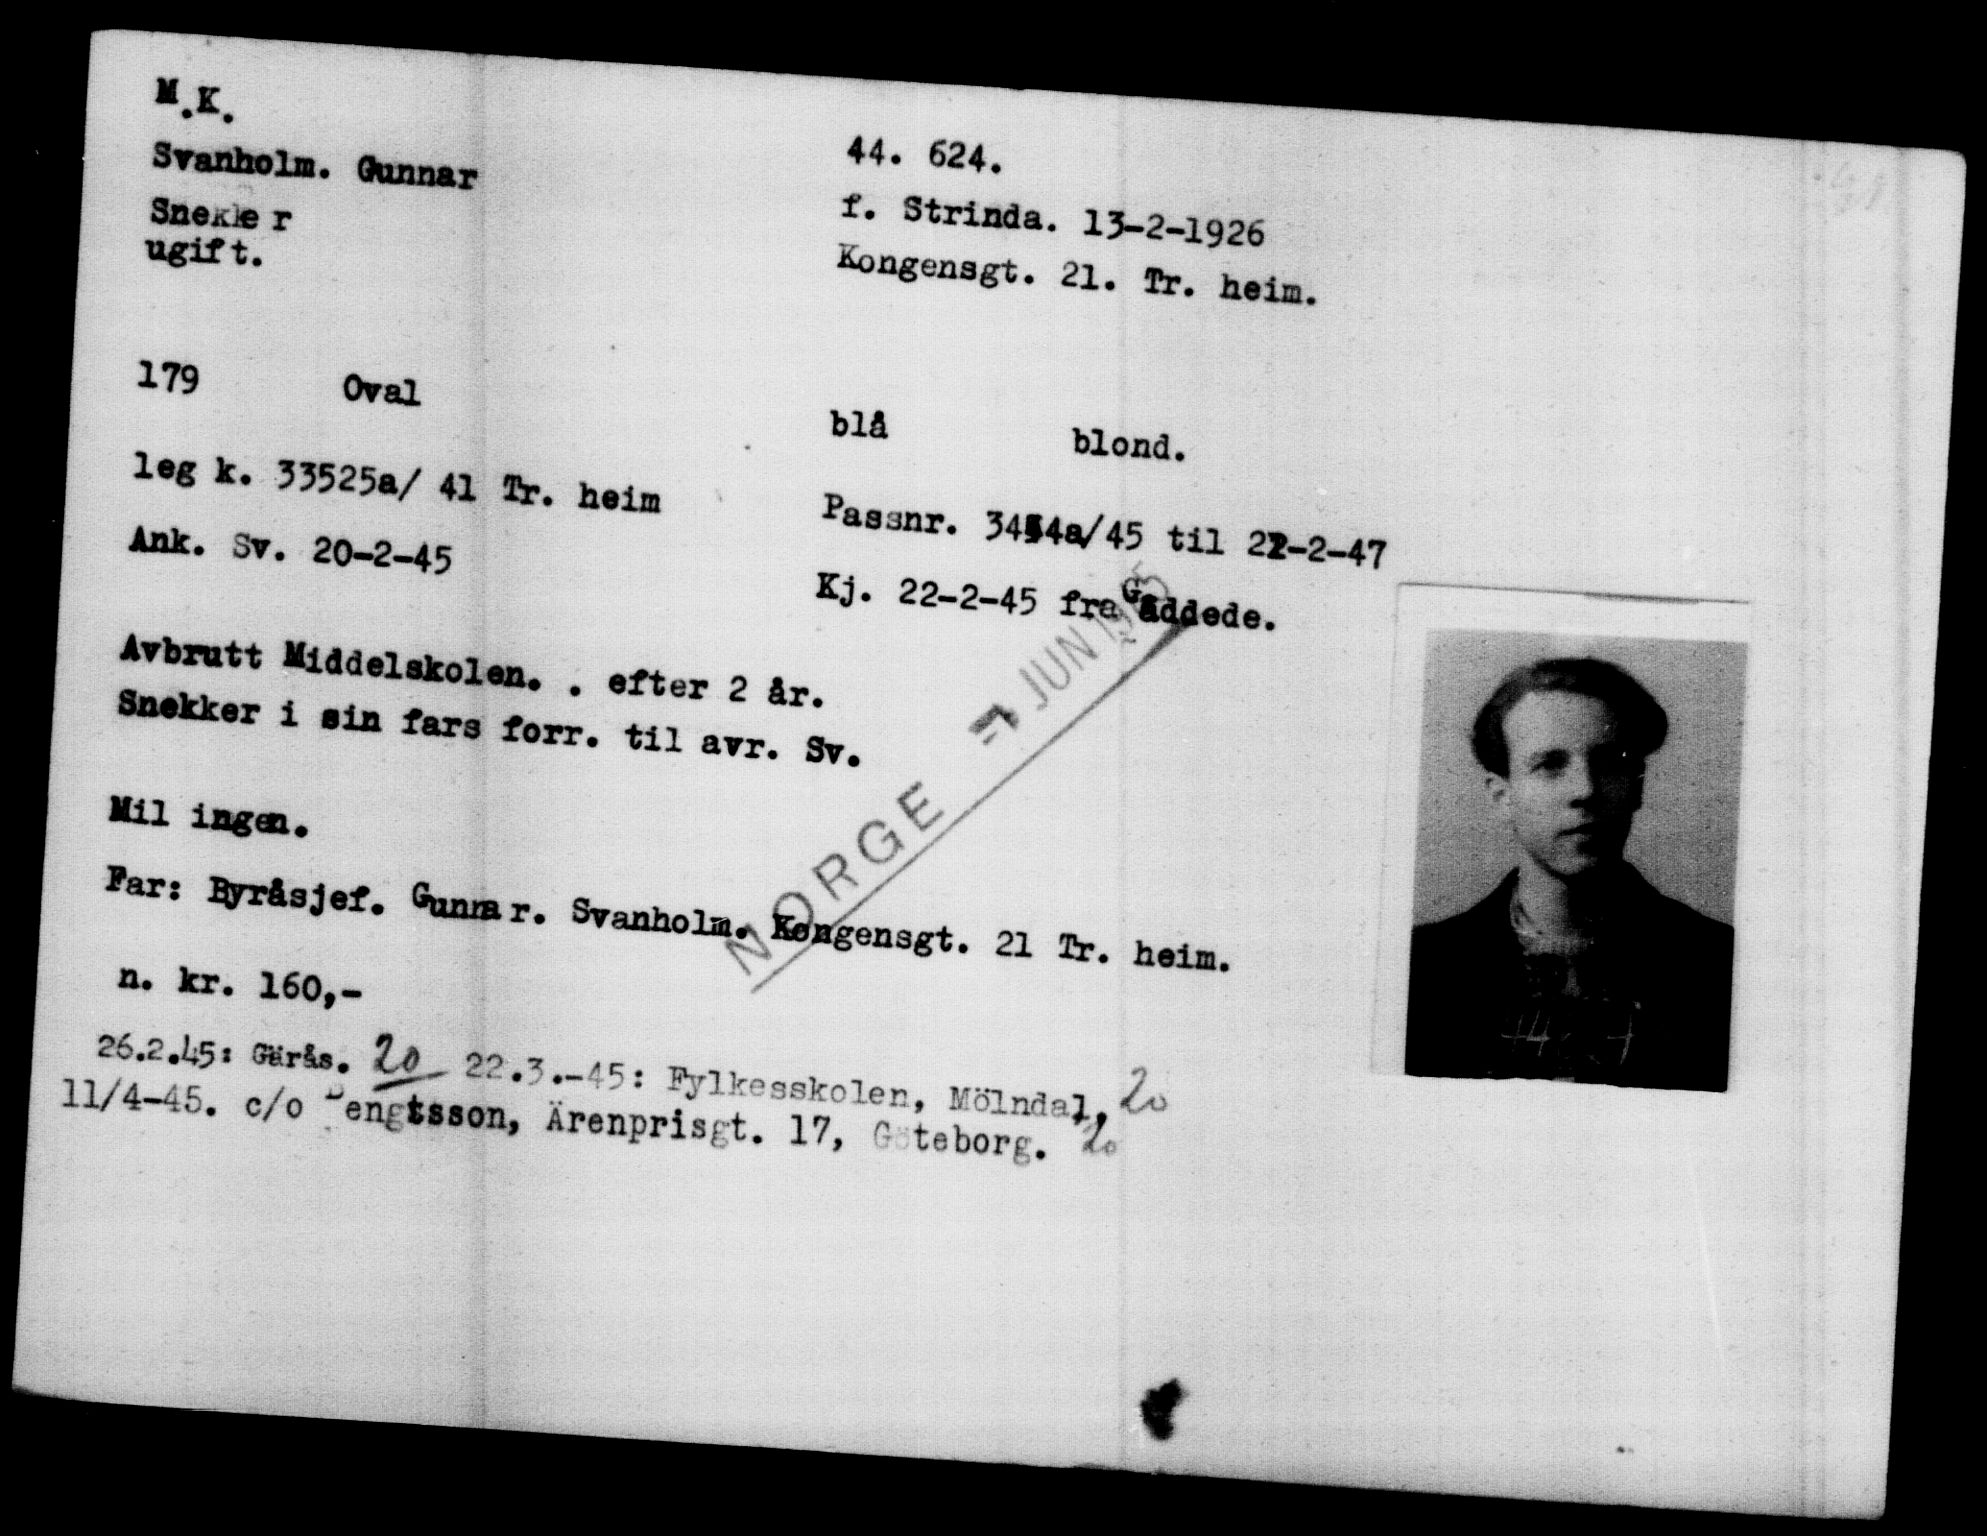 M.K.
44. 624.
Svanholm. Gunnar
f. Strinda. 13-2-1926
Snekker
Kongensgt. 21. Tr. heim.
ugift.
179 Oval blå blond.
leg k. 33525a/ 41 Tr. heim
Passnr. til 22-2-47
Ank. Sv. 20-2-45
Kj. 22-2-45 fra Gäddede.
Avbrutt Middelskolen. . efter 2 år.
Snekker i sin fars forr. til avr. Sv.
NORGE 7 JUNI 1945
Mil ingen.
Far: Byråsjef. Gunnar. Svanholm. Kongensgt. 21 Tr. heim.
n. kr. 160,-
26.2.45: Gärås. 20 22.3.-45: Fylkesskolen, Mölndal, 20
11/4-45. c/o Bengtsson, Ärenprisgt. 17, Göteborg. 20